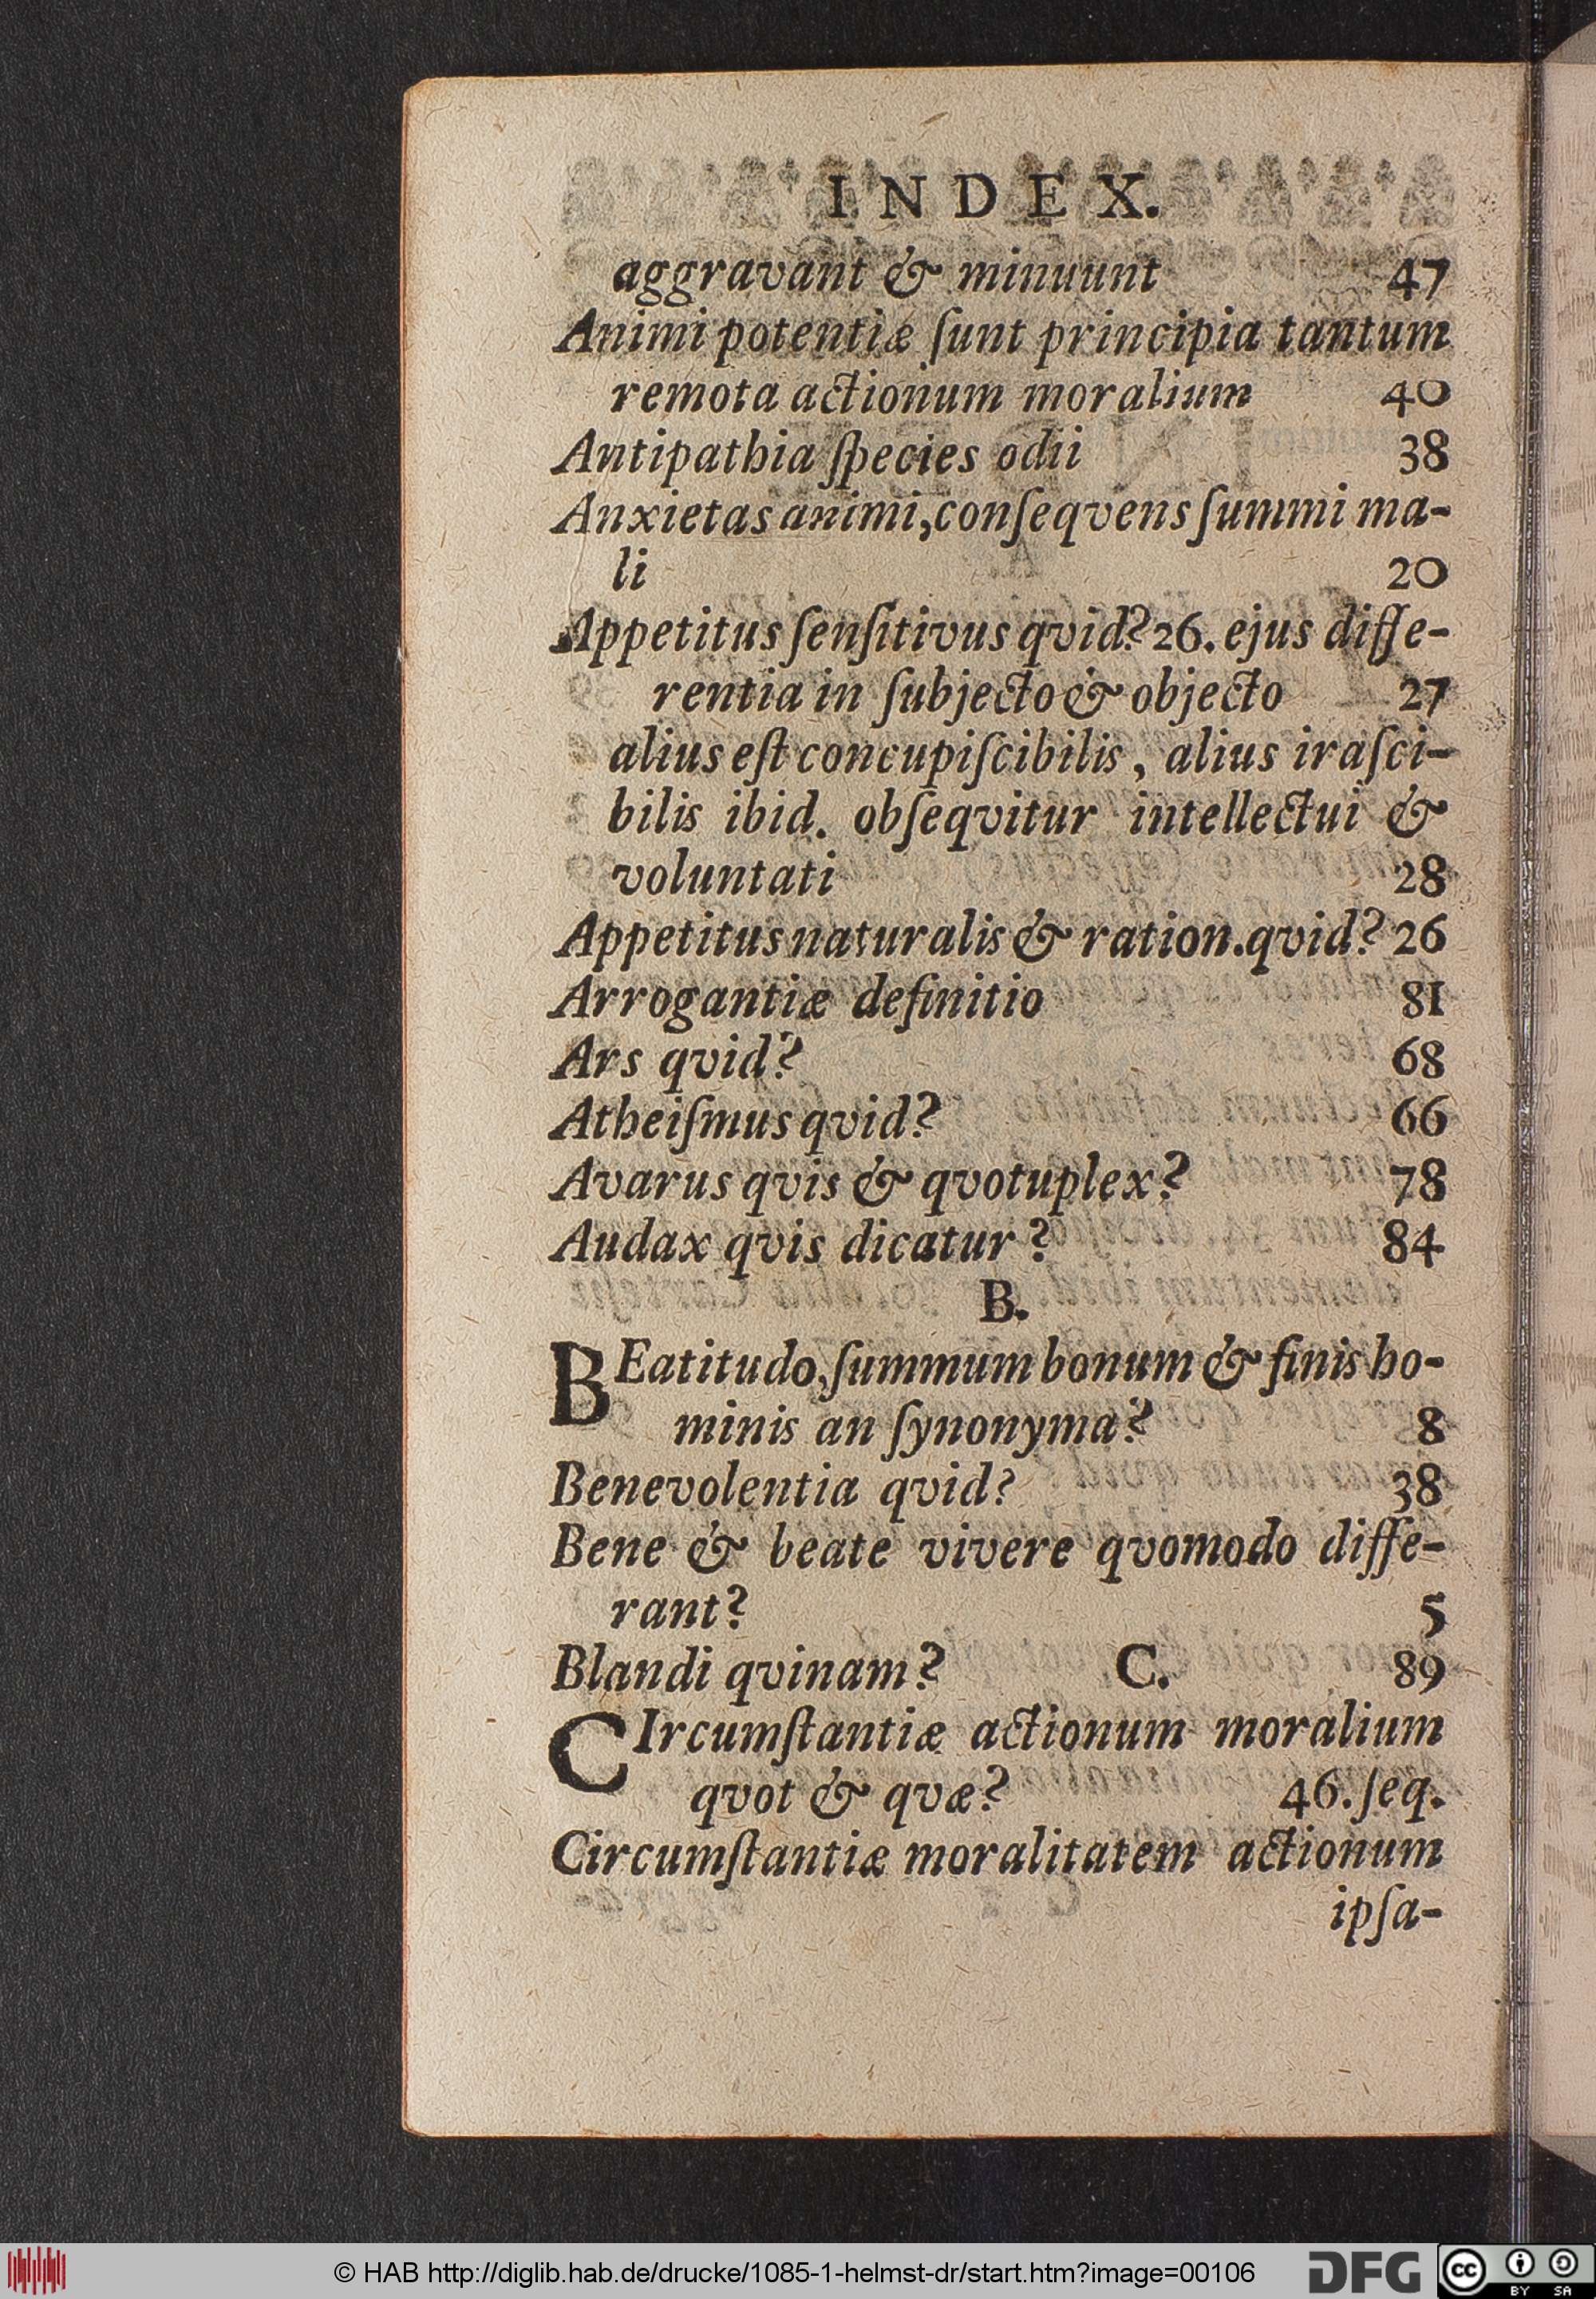 INDEX.
aggravant & minuunt 47
Animi potentiæ ſunt principia tantum
remota actionum moralium 40
Antipathia ſpecies odii 38
Anxietas animi, conſeqvens ſummi ma-
li 20
Appetitus ſenſitivus qvid? 26. ejus diffe-
rentia in ſubjecto & objecto 27
alius eſt concupiſcibilis, alius iraſci-
bilis ibid. obſeqvitur intellectui &
voluntati 28
Appetitus naturalis & ration. qvid? 26
Arrogantiæ definitio 81
Ars qvid? 68
Atheiſmus qvid? 66
Avarus qvis & qvotuplex? 78
Audax qvis dicatur? 84
B.
BEatitudo, ſummum bonum & finis ho-
minis an ſynonyma? 8
Benevolentia qvid? 38
Bene & beate vivere qvomodo diffe-
rant? 5
Blandi qvinam? C. 89
CIrcumſtantiæ actionum moralium
qvot & qvæ? 46. ſeq.
Circumſtantiæ moralitatem actionum
ipſa-
© HAB http://diglib.hab.de/drucke/1085-1-helmst-dr/start.htm?image=00106
DFG
cc BY SA